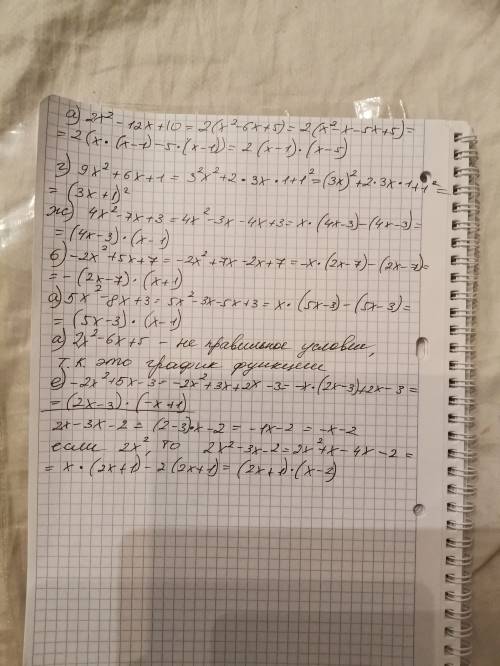 а) 2x² - 12x + 10 = 2(x² - 6x + 5) = 2(x² - x - 5x + 5) =
= 2(x · (x - 1) - 5 · (x - 1)) = 2(x - 1) · (x - 5)
г) 9x² + 6x + 1 = 3²x² + 2 · 3x · 1 + 1² = (3x)² + 2 · 3x · 1 + 1² =
= (3x + 1)²
ж) 4x² - 7x + 3 = 4x² - 3x - 4x + 3 = x · (4x - 3) - (4x - 3) =
= (4x - 3) · (x - 1)
б) -2x² + 5x + 7 = -2x² + 7x - 2x + 7 = -x · (2x - 7) - (2x - 7) =
= - (2x - 7) · (x + 1)
д) 5x² - 8x + 3 = 5x² - 3x - 5x + 3 = x · (5x - 3) - (5x - 3) =
= (5x - 3) · (x - 1)
а) 2x² - 6x + 5 - не правильное условие,
т.к это график функции
е) -2x² + 5x - 3 = -2x² + 3x + 2x - 3 = -x · (2x - 3) + 2x - 3 =
= (2x - 3) · (-x + 1)
2x - 3x - 2 = (2 - 3) · x - 2 = -1x - 2 = -x - 2
если 2x², то 2x² - 3x - 2 = 2x² + x - 4x - 2 =
= x · (2x + 1) - 2(2x + 1) = (2x + 1) · (x - 2)